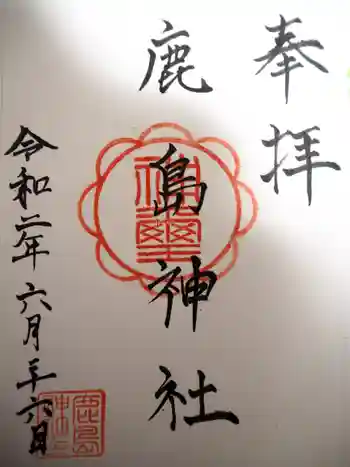 奉拝
鹿島神社
令和二年六月二十六日